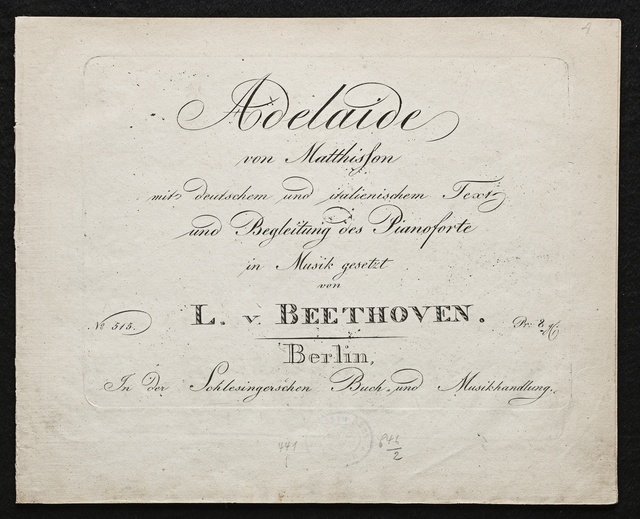 Adelaide
von Matthisson
mit deutschem und italienischem Text
und Begleitung des Pianoforte
in Musik gesetzt
von
L. v. BEETHOVEN.
No 515.
Pr: 8 gr
Berlin,
In der Schlesingerschen Buch- und Musikhandlung.
441